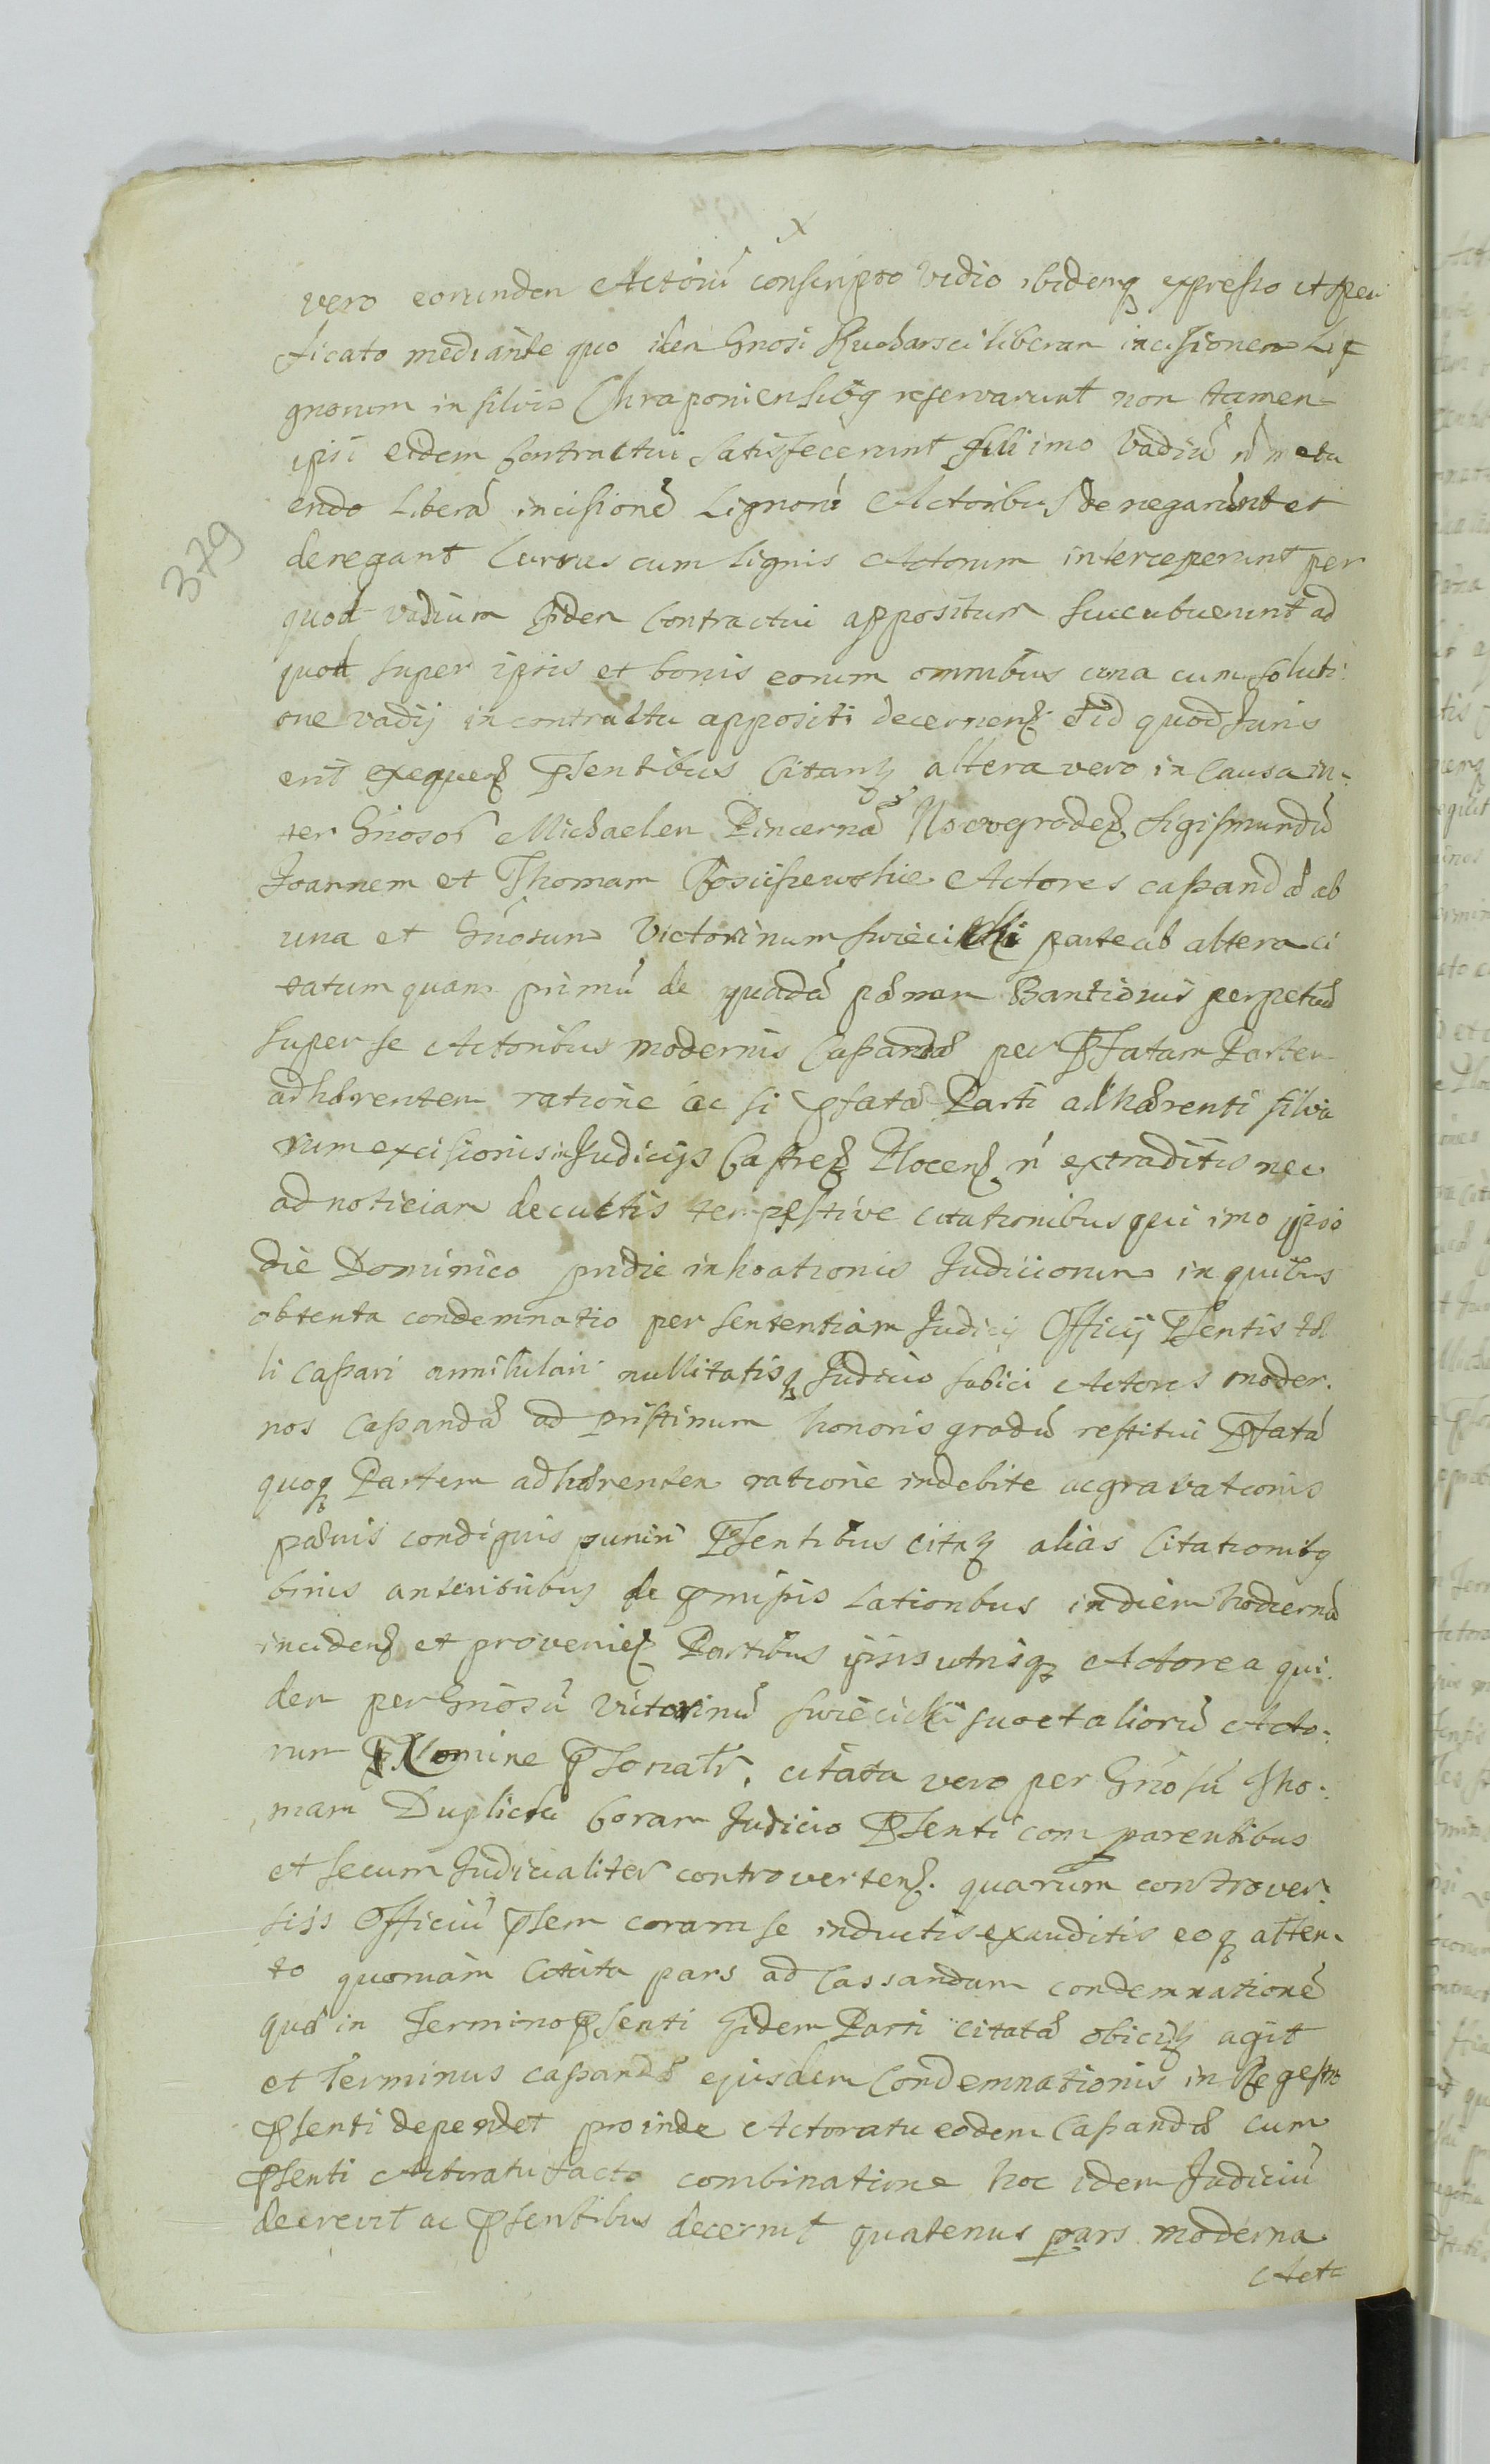 vero eorundem Actorũ conscripto vadio ibidemq expresso et speci
ficato mediante quo idem Gnosi Kucharsci liberam incisionem Lig
gnorum in silvis Chraponiensibq reservarunt non tamen
ipsi eidem Contractui satisfecerunt qui imo Vadiũ ñ metu
endo Liberã incisionẽ Lignorũ Actoribus denegarunt et
denegant Currus cum lignis Actorum interceperunt per
quod vadium eidem Contractui appositum succubuerunt ad
quod super ipsis et bonis eorum omnibus una cum soluti
one vadij in contractu appositi decernenḍ et id quod Juris
erit exequenḍ Psentibus Citantʒ altera vero in Causa in-
ter Gnosos Michaelem Pincernã Novogrodeñ Sigismundũ
Joannem et Thomam Rosciszewskie Actores cassandæ ab
una et Gnosum Victorinum Swiecicki parte ab altera ci
tatum quam primũ de quadã pænam Bannionis perpetuæ
super se Actoribus modernis Cassandæ per Pfatam Partem
adhærentem ratione ac si pfatæ Parti adhærenti silva
rum excisionis in Judicijs Castreñ Ploceñ ñ extraditis nec
ad noticiam deductis tempestive citationibus qui imo ipso
die Dominico pridie inhoationis Judiciorum in quibus
obtenta condemnatio per sententiam Judicij Officij Psentis tol
li cassari annihilari nullitatisq Judicio subici Actores moder-
nos Cassandæ ad pristinum honoris gradũ restitui Pfatã
quoq Partem adhærentem ratione indebite aggravationis
pænis condignis puniri Psentibus citatʒ alias Citationibq
binis anterioribus de pmissis Lationbus in diem hodiernã
incidenḍ et provenieñ Partibus ipsis utrisq Actorea qui
dem per Gnosũ Victorinũ Swiecicki suo et aliorũ Acto-
rum Nomine Psonalr. citata vero per Gnosũ Tho-
mam Duplicki Coram Judicio Psenti comparentibus
et secum Judicialiter controverteñ. quarum controver-
sijs Officiũ Psens coram se inductis exauditis eoq atten-
to quoniam Citata pars ad Cassandum condemnationẽ
quæ in Termino psenti eidem Parti citatæ obicitʒ agit
et Terminus cassandæ ejusdem Condemnationis in Regestro
Psenti dependet proinde Actoratu eodem Cassandæ cum
Psenti Actoratu facta combinatione hoc idem Judiciũ
decrevit ac Psentibus decernit quatenus pars moderna
Acto
379